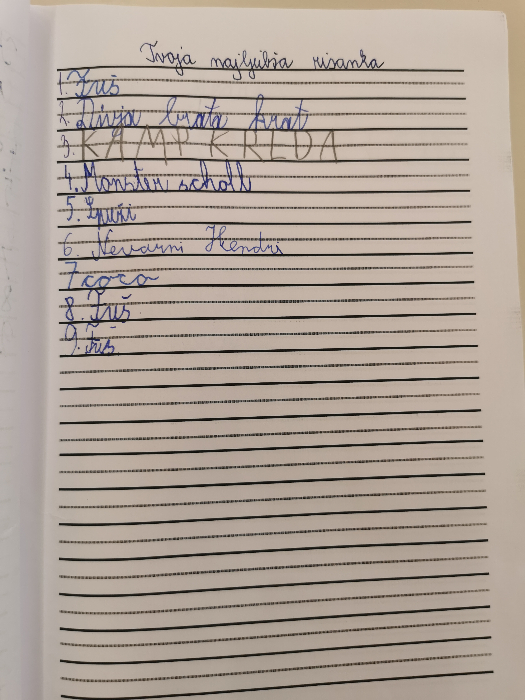 Tvoja najljubša risanka
1. Žuš
2. Divja brata krat
3. KAMP KREDA
4. Monster scholl
5. Spuži
6. Nevarni Hendri
7 coco
8. Fuš
9. Fuš